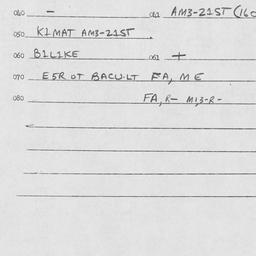 040 - 041 AM3-21ST (160
050 KIMAT AM3-21ST.
060 BILIKE 061 +
070 E5R OT BACU-LT FA, ME
080 FA, R- M13-R-